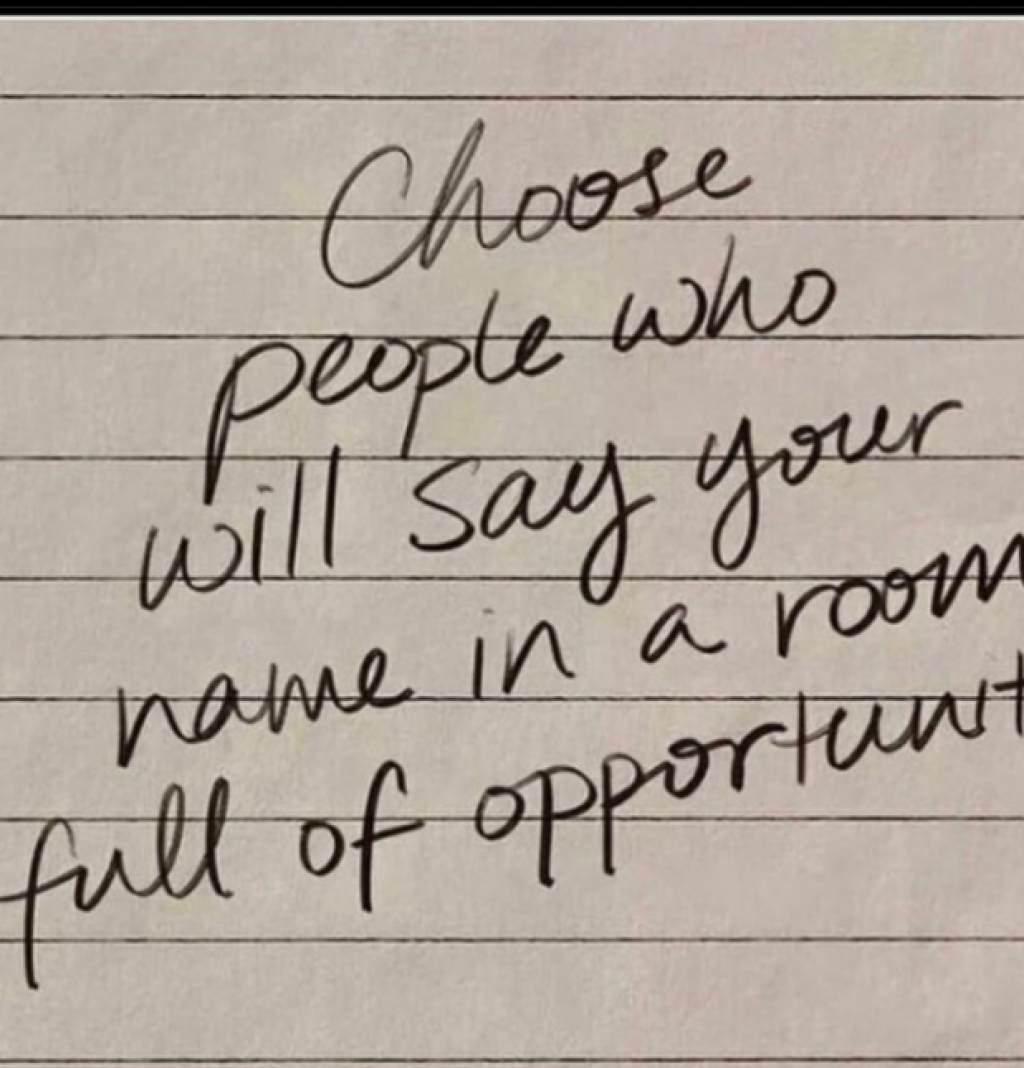 Choose
people who
will say your
name in a room
full of opportunit